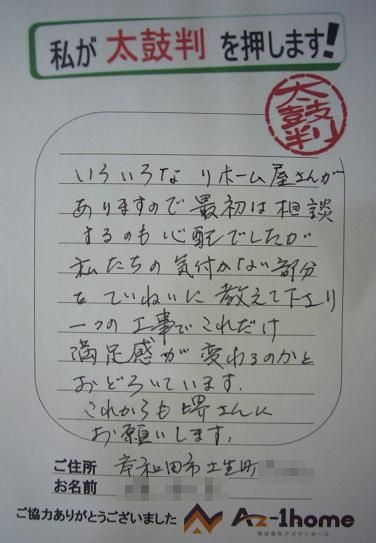 私が 太鼓判 を押します!
太鼓判
いろいろな リホーム屋さんが
ありますので 最初は 相談
するのも 心配でしたが
私たちの 気付かない部分
を ていねいに 教えて下さり
一つの 工事で これだけ
満足感が 変わるのかと
おどろいています.
これからも 堺さんに
お願いします.
ご住所 岸和田市土生町
お名前
ご協力ありがとうございました Az-1home
株式会社アズワンホーム